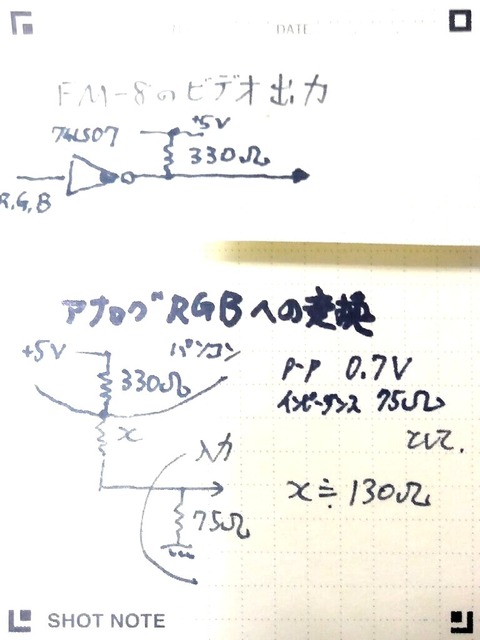 DATE
FM-8のビデオ出力
74LS07
+5V
330Ω
R,G,B
アナログRGBへの変換
+5V
パソコン
330Ω
x
入力
75Ω
P-P 0.7V
インピーダンス 75Ω
として.
x≒130Ω
SHOT NOTE